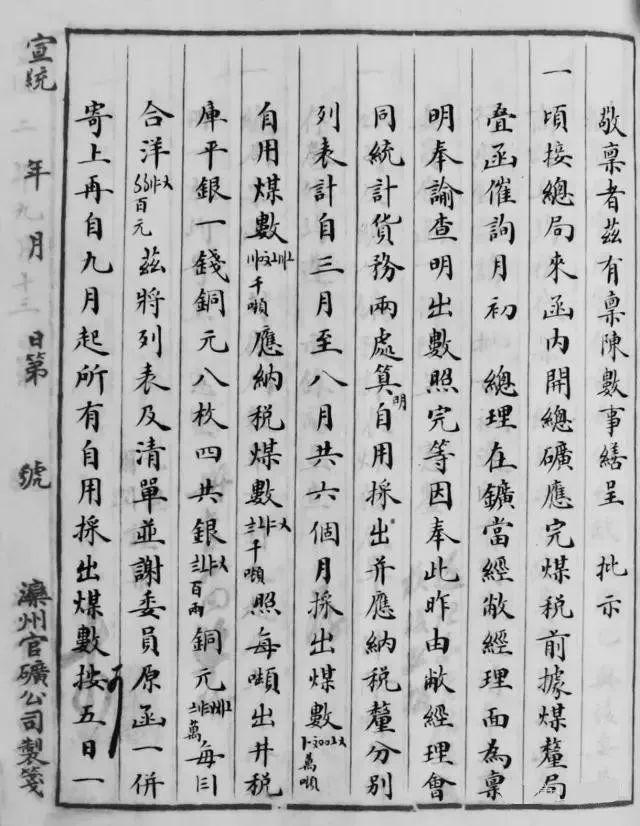 敬稟者茲有稟陳數事繕呈 批示
一頃接總局來函內開總礦應完煤稅前據煤釐局
疊函催詢月初 總理在鑛當經敝經理面為稟
明奉諭查明出數照完等因奉此昨由敝經理會
同統計貨務兩處算明自用採出并應納稅釐分別
列表計自三月至八月共六個月採出煤數萬噸
自用煤數千噸應納稅煤數千噸照每噸出井稅
庫平銀一錢銅元八枚四共銀百兩銅元萬每
合洋百元茲將列表及清單並謝委員原函一併
寄上再自九月起所有自用採出煤數按五日一
宣統二年九月十三日第 號 灤州官礦公司製箋